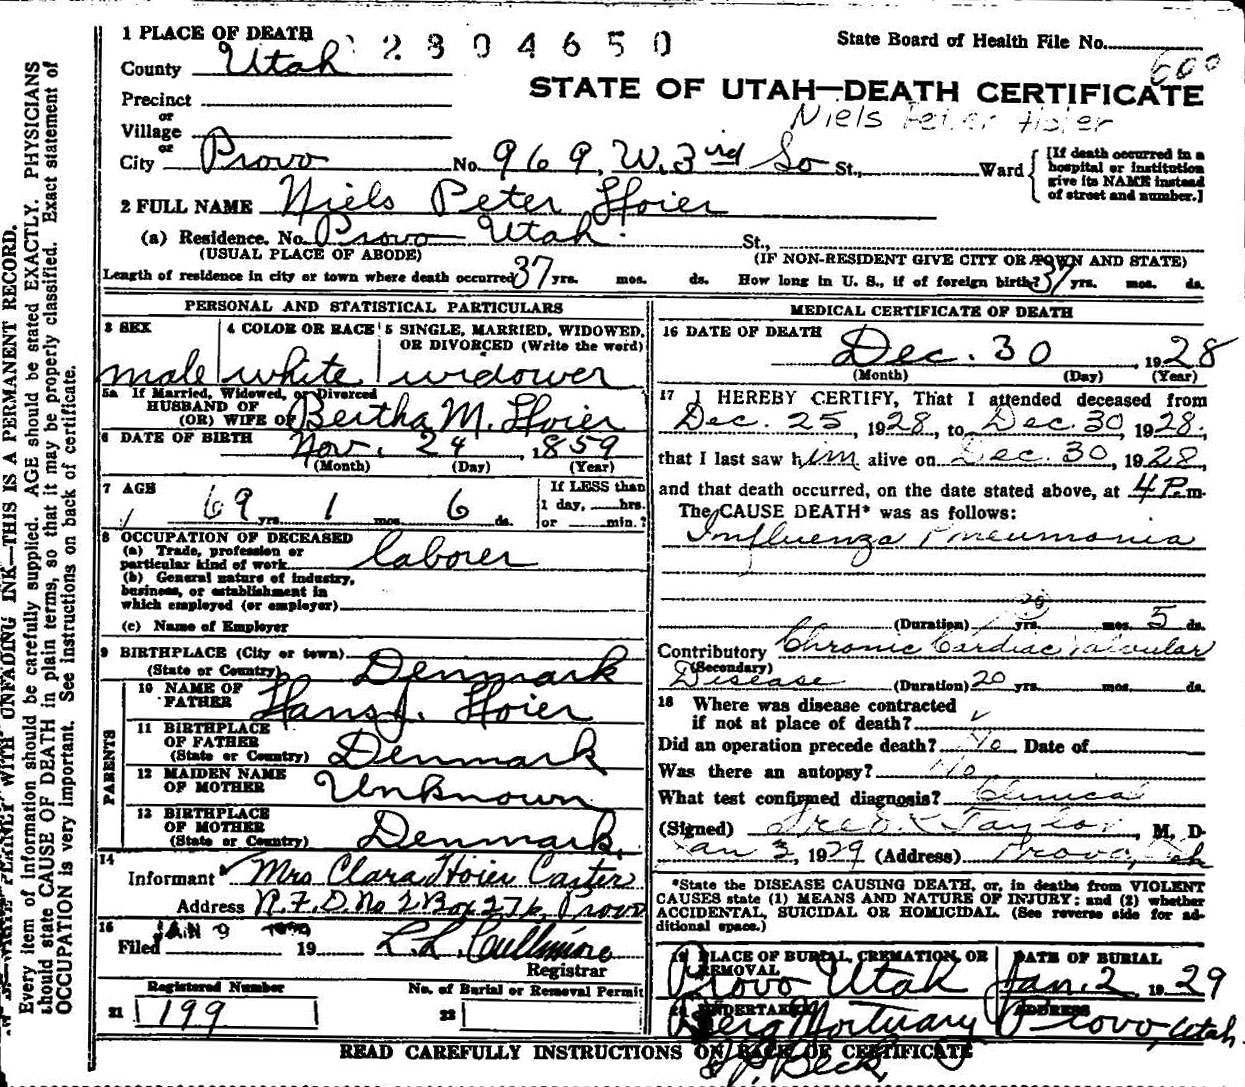 1 PLACE OF DEATH 2304650 State Board of Health File No. 600
County Utah
STATE OF UTAH—DEATH CERTIFICATE
Precinct
or
Village
Niels Peter Hoier
or
City Provo No. 969, W. 3rd So St., Ward [If death occurred in a hospital or institution give its NAME instead of street and number.]
2 FULL NAME Niels Peter Hoier
(a) Residence. No. Provo Utah. St.,
(USUAL PLACE OF ABODE) (IF NON-RESIDENT GIVE CITY OR TOWN AND STATE)
Length of residence in city or town where death occurred 37 yrs. mos. ds. How long in U. S., if of foreign birth? 37 yrs. mos. ds.
PERSONAL AND STATISTICAL PARTICULARS
3 SEX 4 COLOR OR RACE 5 SINGLE, MARRIED, WIDOWED, OR DIVORCED (Write the word)
male white widower
5a If Married, Widowed, or Divorced
HUSBAND OF
(OR) WIFE OF Bertha M. Hoier
6 DATE OF BIRTH Nov. 24, 1859
(Month) (Day) (Year)
7 AGE 69 yrs. 1 mos. 6 ds. If LESS than 1 day, hrs. or min.?
8 OCCUPATION OF DECEASED
(a) Trade, profession or
particular kind of work laborer
(b) General nature of industry,
business, or establishment in
which employed (or employer)
(c) Name of Employer
9 BIRTHPLACE (City or town)
(State or Country) Denmark
PARENTS
10 NAME OF FATHER Hans J. Hoier
11 BIRTHPLACE OF FATHER
(State or Country) Denmark
12 MAIDEN NAME OF MOTHER Unknown
13 BIRTHPLACE OF MOTHER
(State or Country) Denmark.
14
Informant Mrs Clara Hoier Carter
Address R.F.D. No 2 Box 276, Provo
15
Filed JAN 9 19 L. L. Cullimore
Registrar
Registered Number No. of Burial or Removal Permit
21 199 22
MEDICAL CERTIFICATE OF DEATH
16 DATE OF DEATH Dec. 30, 1928
(Month) (Day) (Year)
17 I HEREBY CERTIFY, That I attended deceased from
Dec. 25, 1928, to Dec. 30, 1928.
that I last saw him alive on Dec. 30, 1928,
and that death occurred, on the date stated above, at 4 P.m.
The CAUSE DEATH* was as follows:
Influenza Pneumonia
(Duration) yrs. mos. 5 ds.
Contributory Chronic Cardiac Valvular
(Secondary)
Disease (Duration) 20 yrs. mos. ds.
18 Where was disease contracted
if not at place of death?
Did an operation precede death? No Date of
Was there an autopsy? No
What test confirmed diagnosis? Clinical
(Signed) Fred Taylor, M. D.
Jan 3, 1929 (Address) Provo, Utah
*State the DISEASE CAUSING DEATH, or, in deaths from VIOLENT
CAUSES state (1) MEANS AND NATURE OF INJURY: and (2) whether
ACCIDENTAL, SUICIDAL OR HOMICIDAL. (See reverse side for ad-
ditional space.)
19 PLACE OF BURIAL, CREMATION, OR REMOVAL DATE OF BURIAL
Provo Utah Jan. 2, 1929
20 UNDERTAKER ADDRESS
Berg Mortuary Provo, Utah
Beck
READ CAREFULLY INSTRUCTIONS ON BACK OF CERTIFICATE
WRITE PLAINLY WITH UNFADING INK—THIS IS A PERMANENT RECORD.
Every item of information should be carefully supplied. AGE should be stated EXACTLY. PHYSICIANS
should state CAUSE OF DEATH in plain terms, so that it may be properly classified. Exact statement of
OCCUPATION is very important. See instructions on back of certificate.